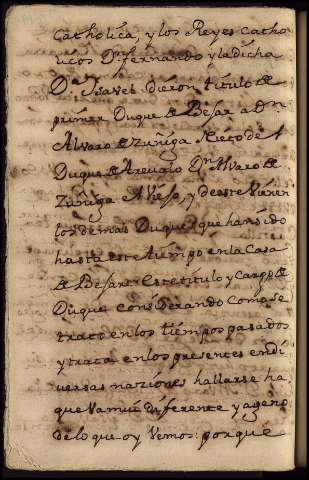 Catholica, y los Reyes Catho
licos Dn fernando y la dicha
Da. Ysavel dieron titulo de
primer Duque de Besar a Dn
Alvaro de Zuñiga Nieto del
Duque de Arevalo Dn Alvaro de
Zuñiga el Viejo, y de este vienen
los demas Duques que han sido
hasta este tiempo en la Casa
de Besar: este titulo y cargo de
Duque considerando como se
trato en los tiempos pasados
y trata en los presentes en di
versas naziones hallarse ha
que va mui diferente y ageno
de lo que oy vemos: porque